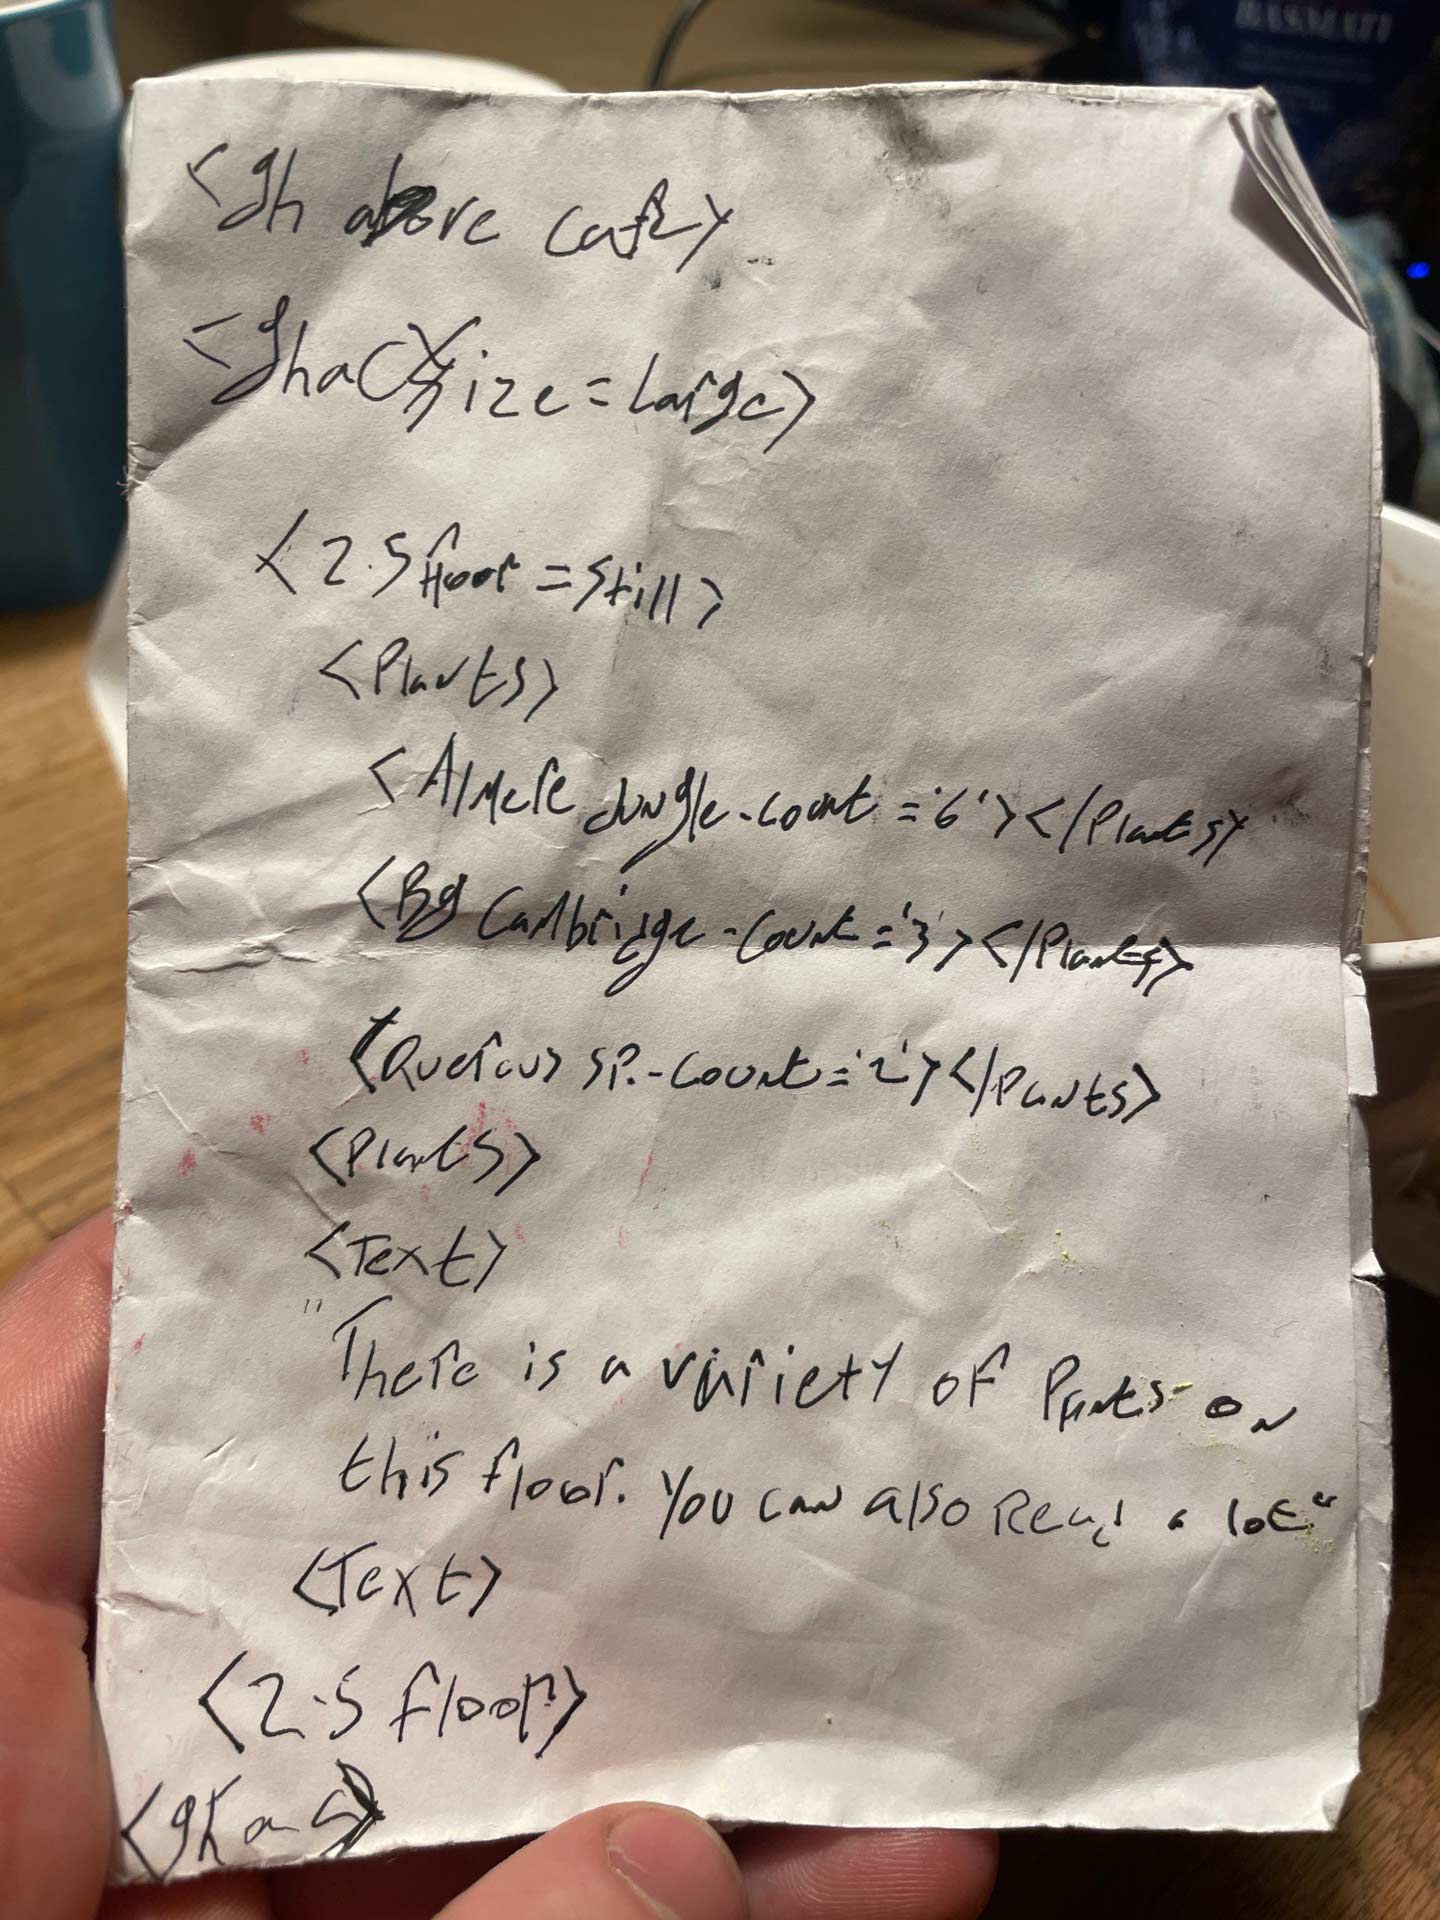 BASMATI
<gh above cafe>
<ghac size=large>
<2.5 floor=still>
<Plants>
<Almere Jungle-count='6'></Plants>
<Bg Cambridge-count='3'></Plants>
<Quercus sp.-count='2'></Plants>
<Plants>
<Text>
"There is a variety of Plants on
this floor. You can also Read a lot"
<Text>
<2.5 floor>